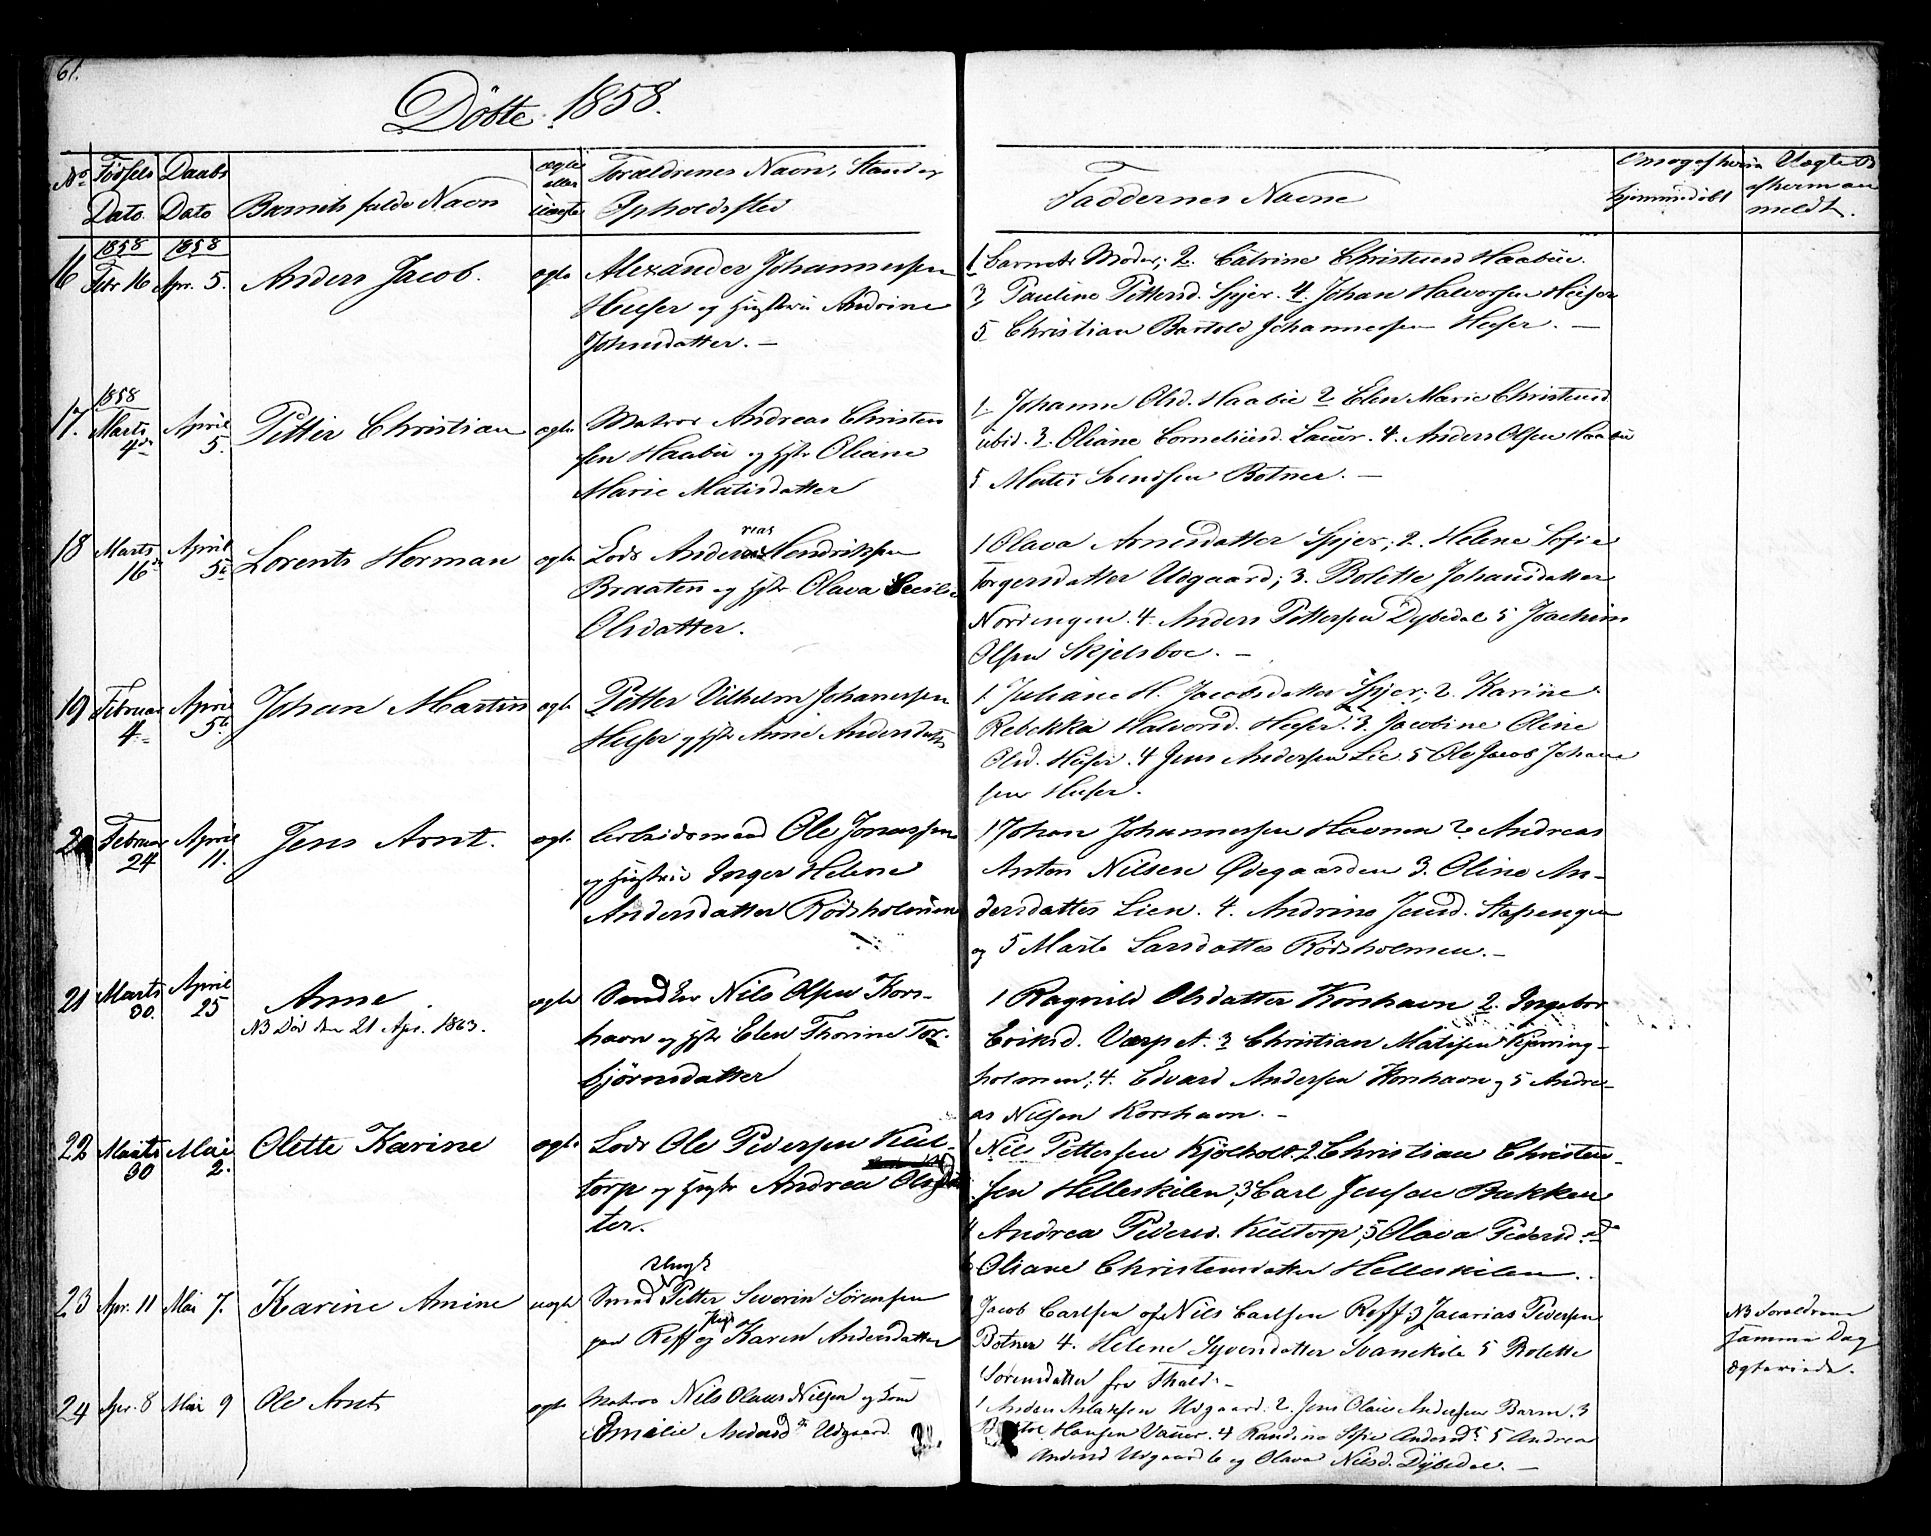 61.
Döbte 1858.
No Fødsels Dato Daabs Dato Barnets fulde Navn ægte eller uægte Forældrenes Navn, Stand og Opholdssted
Faddernes Navne
hjemmedøbt meldt.
16 1858 Febr 16 1858 Apr. 5. Anders Jacob. ægte
Alexander Johannessen
Huser og Hustru Andrine
Johnsdatter. —
1 Barnets Moder; 2. Catrine Christensd Haabu.
3 Pauline Pettersd. Spjer. 4. Johan Halvorsen Huser
5 Christian Bartold Johannessen Huser. —
17. 1858 Marts 4de April 5. Petter Christian ægte
Matros Andreas Christen
sen Haabu og Hstr Oliane
Marie Matisdatter
1 Johanne Olsd. Haabu 2 Elen Marie Christensd
ibid. 3. Oliane Corneliusd. Lauer. 4. Anders Olsen Haabu
5 Matis Svendsen Botner. —
18 Marts 16de April 5te Lorents Herman ægte
Lods Andreas Hendriksen
Braaten og Hstr Olava Cecilie
Olsdatter.
1 Olava Arnesdatter Spjer; 2. Helene Sofie
Torgersdatter Udgaard; 3. Bolette Johansdatter
Nordengen. 4. Anders Pettersen Dybedal 5 Joachim
Olsen Skjelsboe. —
19 Februar 4de April 5te Johan Martin ægte
Petter Vilhelm Johanessen
Huser og Hstr Anne Andersdatter
1. Juliane H. Jacobsdatter Spjer; 2. Karine
Rebekka Halvorsd. Huser. 3. Jacobine Oline
Olsd. Huser. 4 Jens Andersen Lie. 5 Ole Jacob Johane
sen Huser.
20 Februar 24 April 11. Jens Arnt. ægte
Arbeidsmand Ole Jonassen
og Hustru Inger Helene
Andersdatter Rödsholmen
1 Johan Johannessen Havnen 2 Andreas
Anton Nilsen Ødegaarden 3. Oline An-
dersdatter Lien. 4. Andrine Jensd. Stafsengen
og 5 Marte Larsdatter Rödsholmen. —
21 Marts 30. April 25 Anne ægte
NB Död den 21 Apr. 1863.
Nils Olsen Kors-
havn og Hstr Elen Thorine Tor-
björnsdatter
1 Ragnild Olsdatter Korshavn 2. Ingebor
Eriksd. Værpet. 3 Christian Matisen Kjerring-
holmen; 4. Edvard Andersen Korshavn og 5 Andre-
as Nilsen Korshavn. —
22 Marts 30 Mai 2. Olette Karine ægte
Lods Ole Pedersen Kuil-
torp og Hustr Andrea Olsdat
ter.
1 Nils Pettersen Kjölholt. 2. Christian Christen-
sen Helleskilen, 3 Carl Jensen Bakken
4 Andrea Pedersd. Kuiltorp, 5 Olava Pedersd.
6 Oliane Christensdatter Helleskilen.
23 Apr. 11 Mai 7. Karine Amine uægte
Ungk
Smed Petter Severin Sörensen
paa Reff og Pige Karen Andersdatter
1 Jacob Carlsen og 2 Nils Carlsen Reff; 3 Jacarias Pedersen
Botner 4. Helene Syvensdatter Svanekile 5 Bolette
Sörensdatter fra Thald. —
NB Foreldrene
samme Dag
ægteviede.
24 Apr. 8 Mai 9 Ole Arnt ægte
Matros Nils Olaus Nilsen og Kone
Emilie Andersd Udgaard
1 Anders Aslaksen Udgaard. 2. Jens Olaus Andersen Barm. 3
Hansen Vauer. 4 Randine Sofie Andersd. 5 Andrea
Andersd Udgaard 6 og Olava Nilsd. Dÿbedal. —